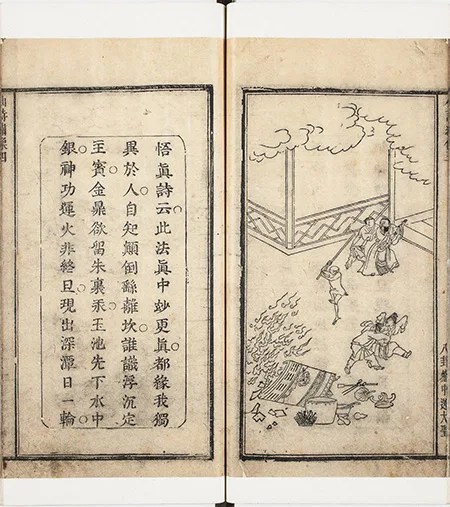 八卦爐中逃大聖
悟眞詩云此法眞中妙更眞都緣我獨
異於人自知顛倒繇離坎誰識浮沉定
主賓金鼎欲留朱裏汞玉池先下水中
銀神功運火非終旦現出深潭日一輪